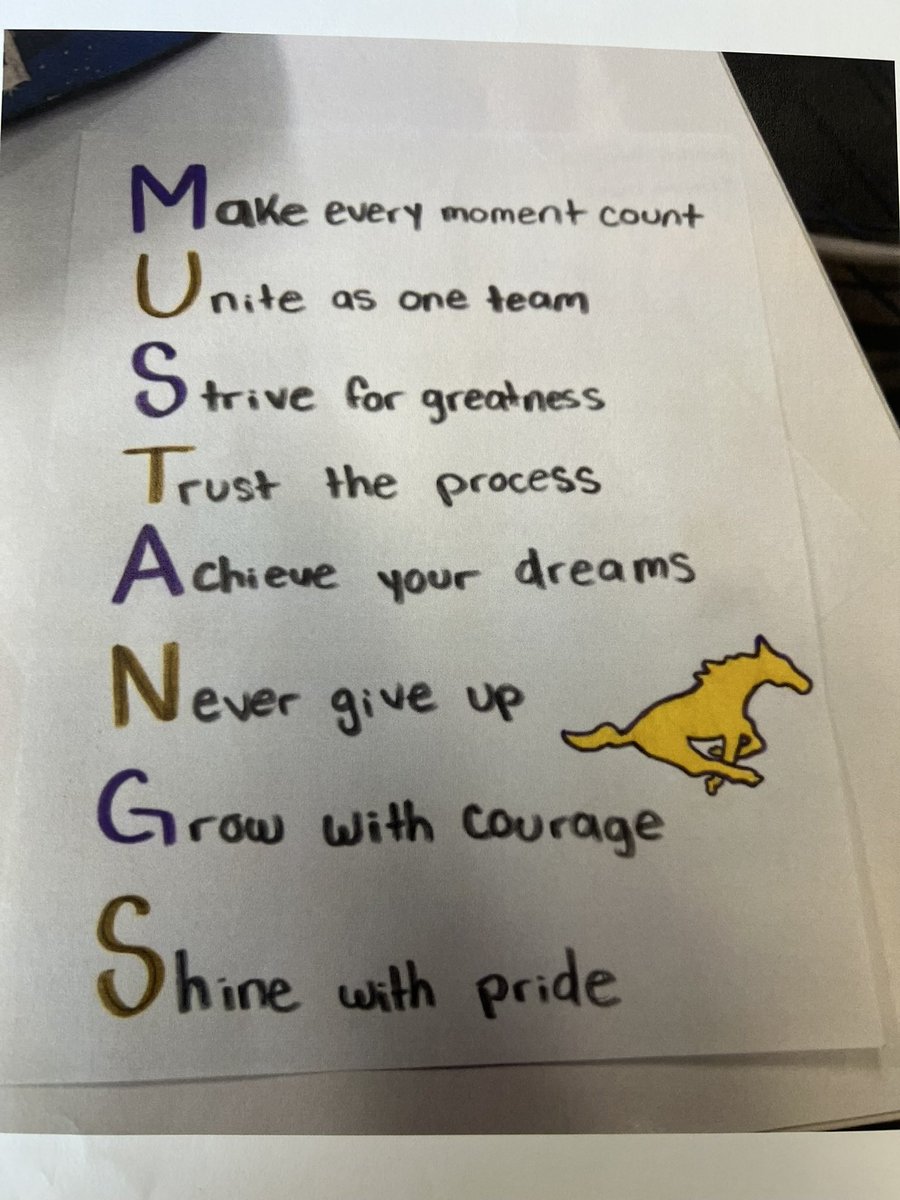 Make every moment count
Unite as one team
Strive for greatness
Trust the process
Achieve your dreams
Never give up
Grow with courage
Shine with pride